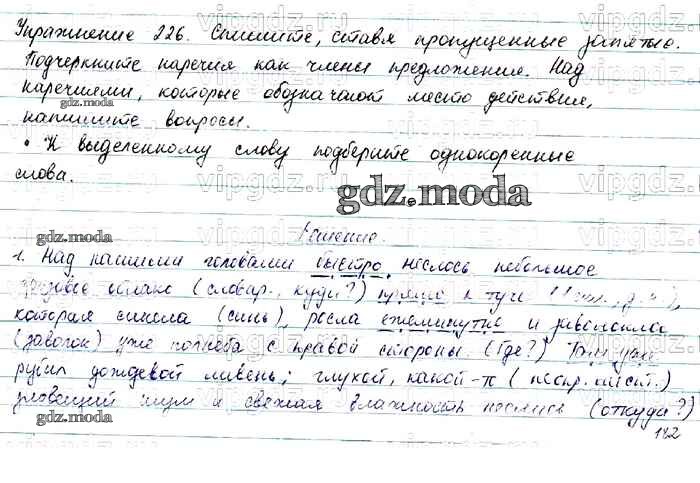 Упражнение 226. Спишите, ставя пропущенные запятые.
Подчеркните наречия как члены предложения. Над
наречиями, которые обозначают место действия,
напишите вопросы.
• К выделенному слову подберите однокоренные
слова.
gdz.moda
Решение.
1. Над нашими головами быстро неслось небольшое
облако (словар., куди?) прямо к туче
которая синела (синь), росла ежеминутно и заволокла
(заволок) уже полнеба с правой стороны. (Где?) Там уже
рубил дождевой ливень; глухой, какой-то
зловещий шум и свежая влажность неслись (откуда?)
142
gdz.moda
gdz.moda
gdz.moda
gdz.moda
vipgdz.ru